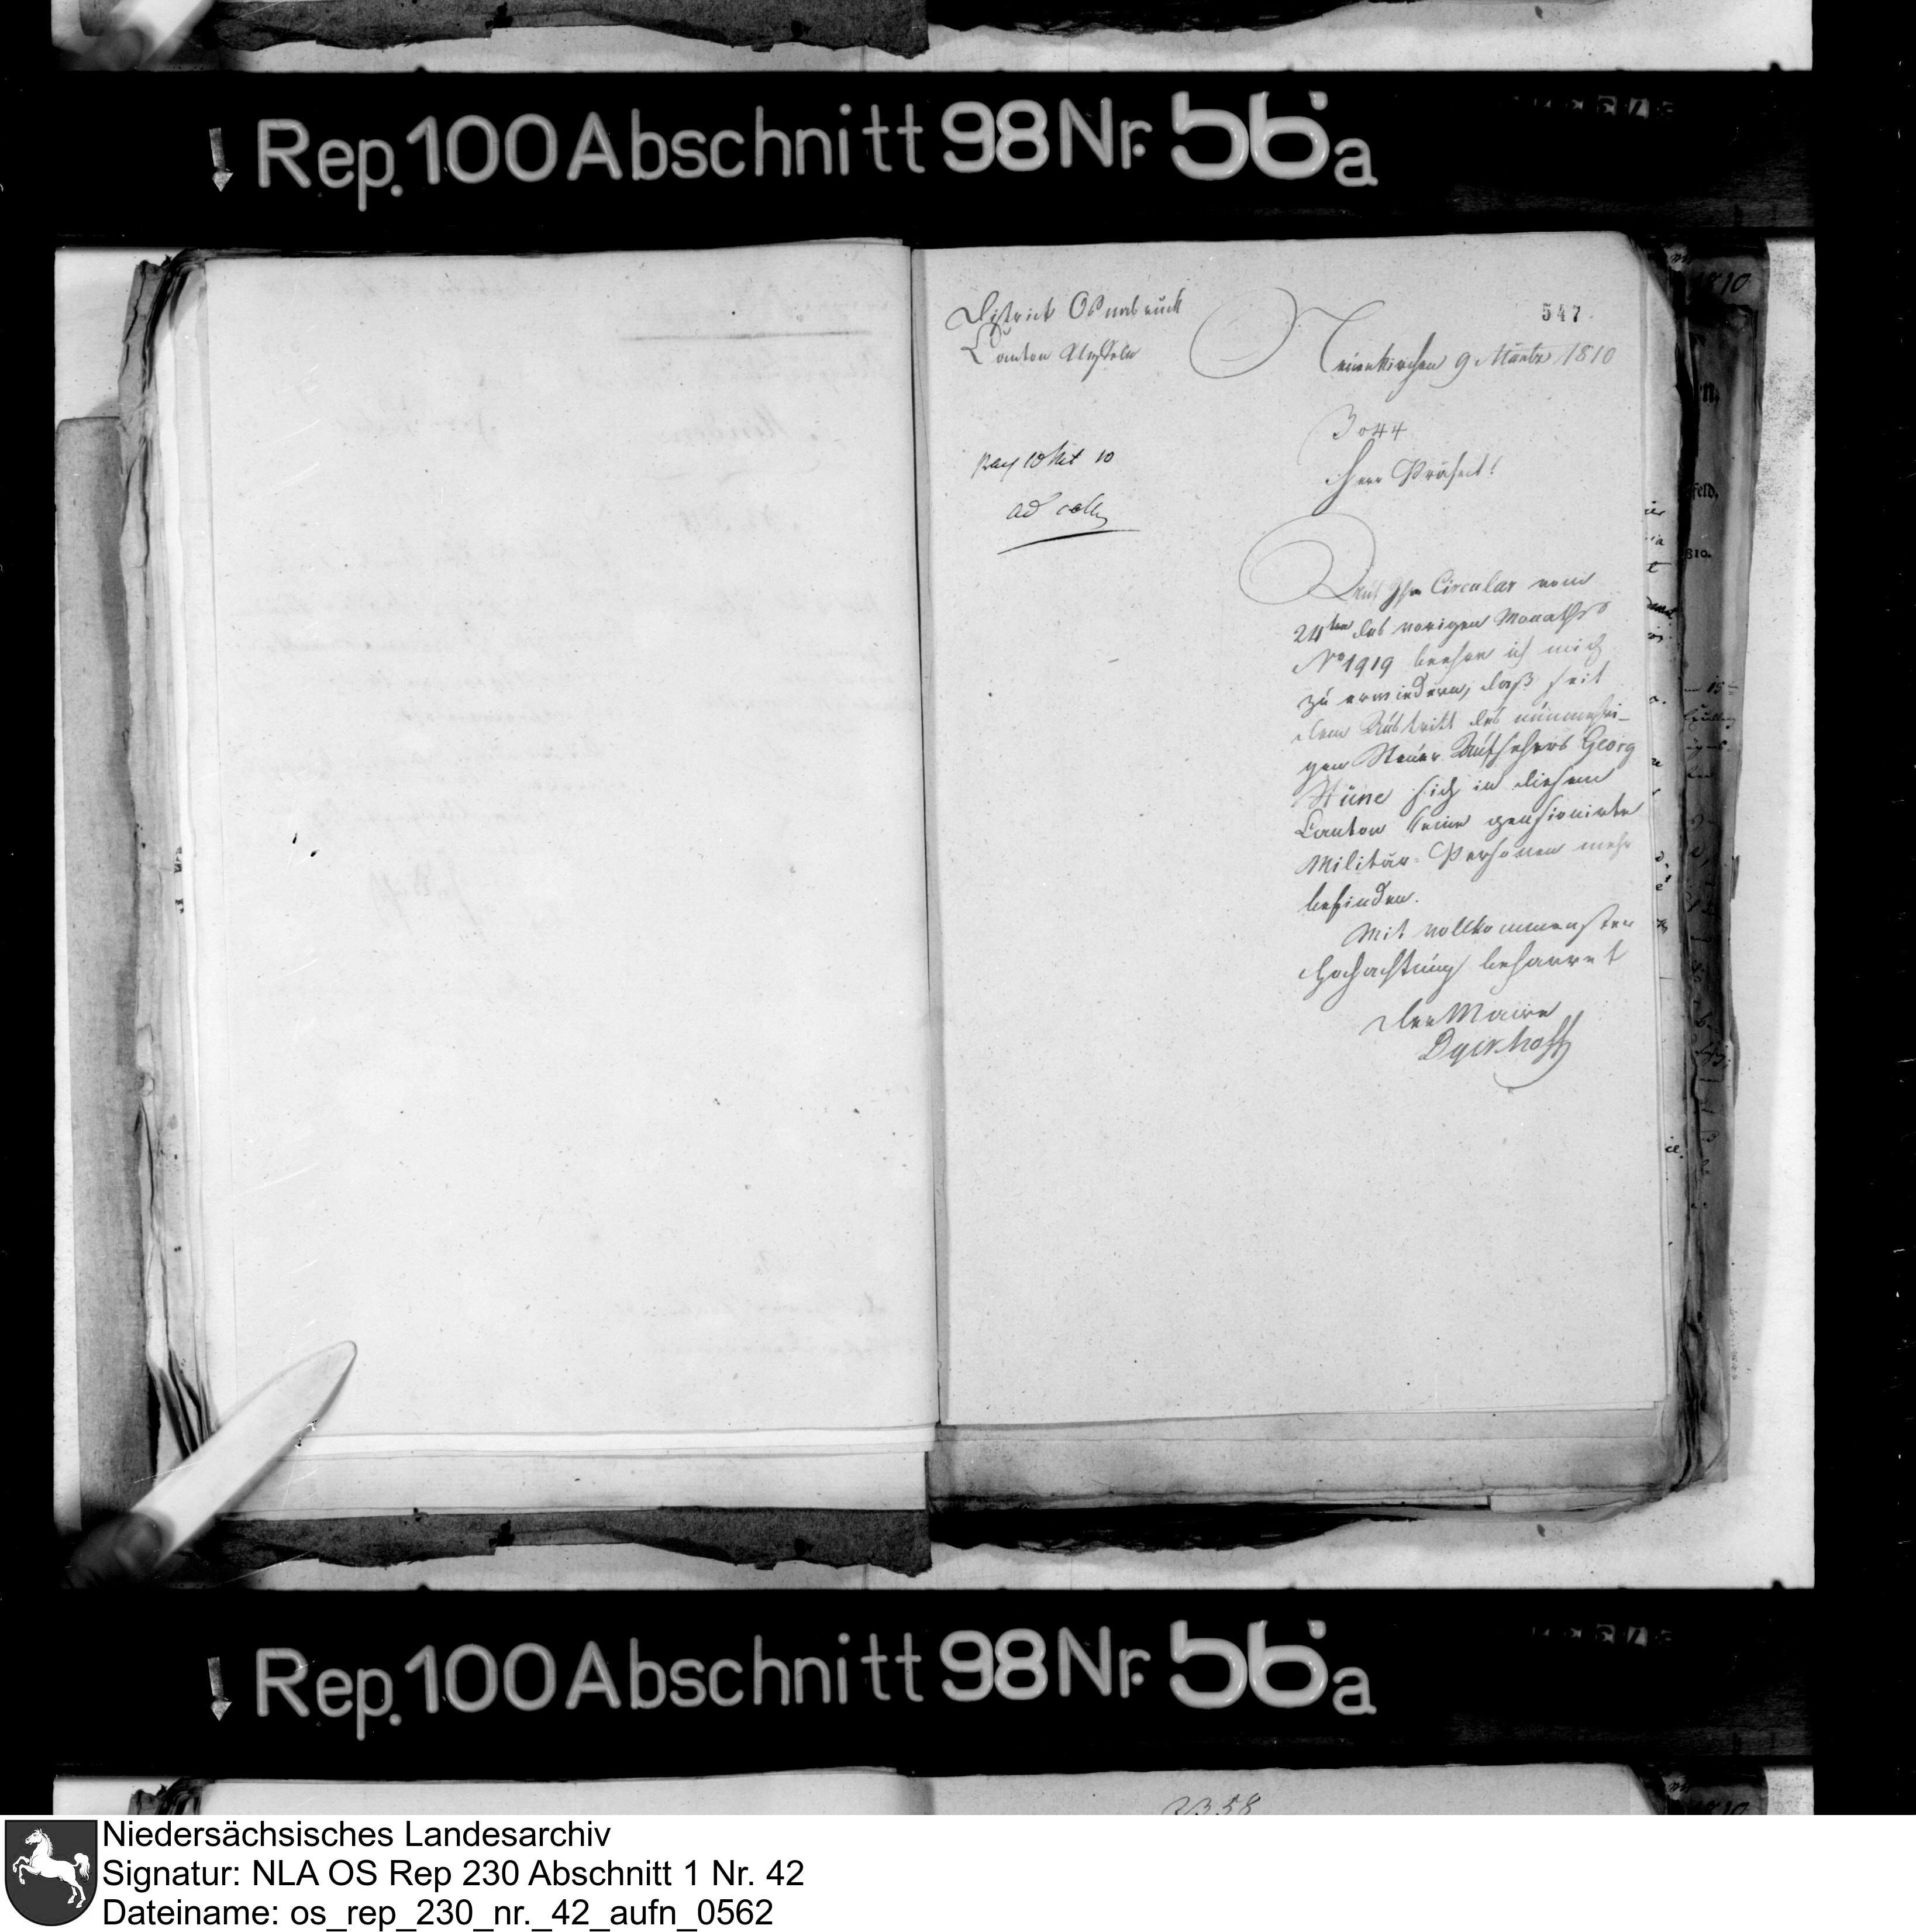 Rep. 100 Abschnitt 98 Nr. 56a
547
District Osnabrück
Canton
Neuenkirchen 9 Maertz 1810
3044
Herr Präfect!
10 10
ad coll
Circular vom
24ten des vorigen Monaths
No 1919 beehre ich mich
zu erwiedern, daß seit
dem Austritt des nunmehri-
gen Steuer Aufsehers Georg
Stüne sich in diesem
Canton keine pensionirte
Militär-Personen mehr
befinden.
Mit vollkommenster
Hochachtung beharret
Der Maire
Dyckhoff
Rep. 100 Abschnitt 98 Nr. 56a
Niedersächsisches Landesarchiv
Signatur: NLA OS Rep 230 Abschnitt 1 Nr. 42
Dateiname: os_rep_230_nr._42_aufn_0562